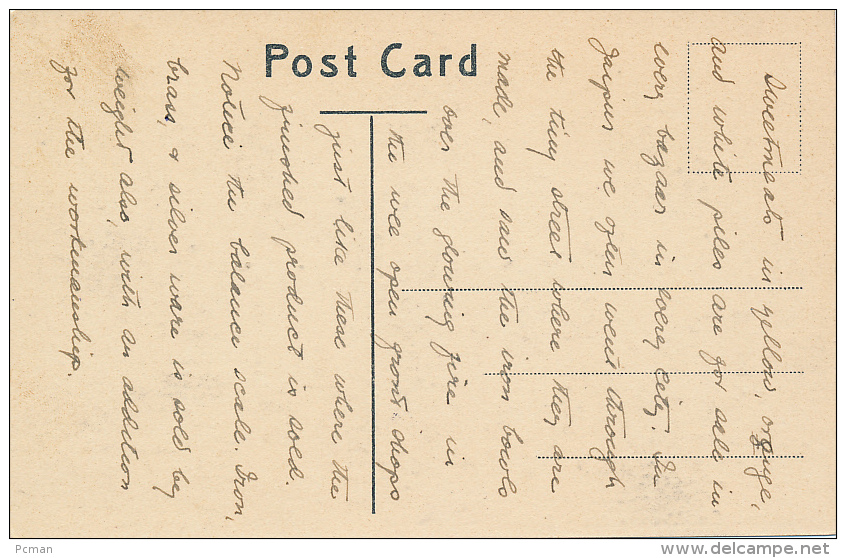 Post Card
Sweetmeats in yellow, orange,
and white piles are for sale in
every bazaar in every city. In
Jaipur we often went through
the tiny street where they are
made, and saw the iron bowls
over the glowing fire in
the wee open front shops
just like these where the
finished product is sold.
Notice the balance scale. Iron,
brass, & silver ware is sold by
weight also, with an addition
for the workmanship.
Pcman
www.delcampe.net